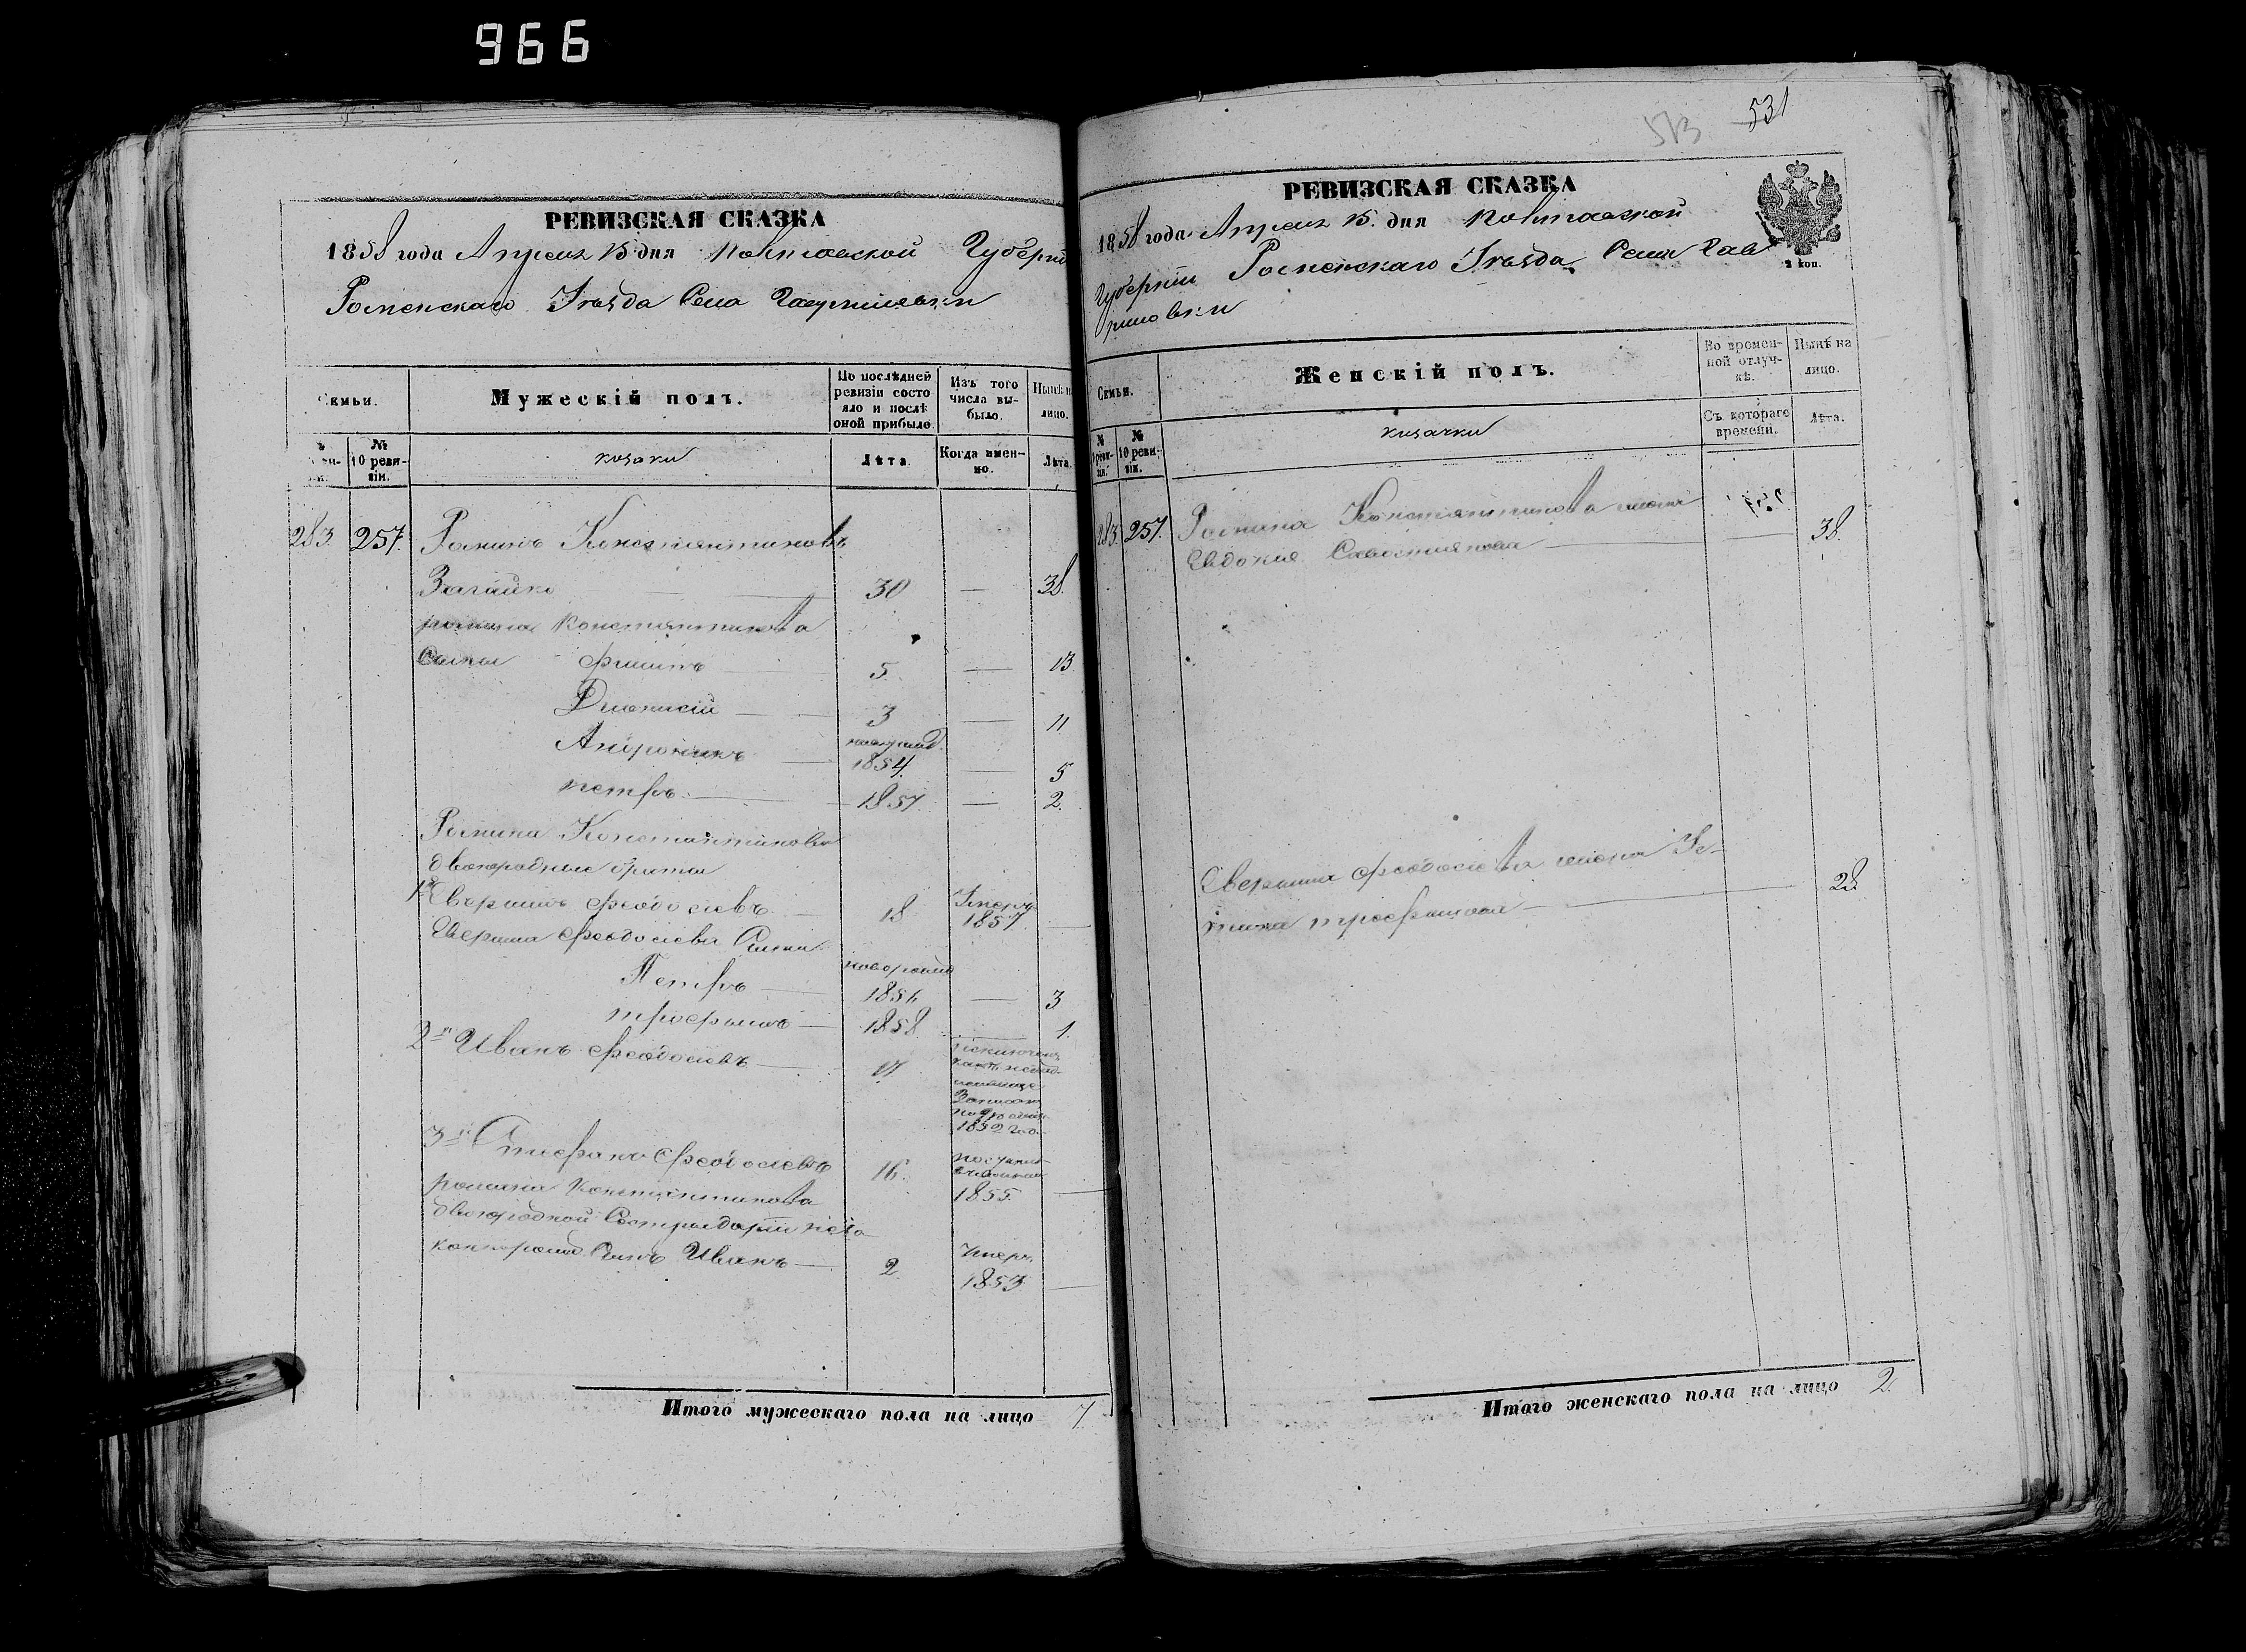 966
РЕВИЗСКАЯ СКАЗКА
1858 года Апреля 15 дня Полтавской Губерніи
Роменскаго Уѣзда Села Гавришовки
Семьи.
Мужескій полъ.
По послѣдней ревизіи состояло и послѣ оной прибыло.
Изъ того числа выбыло.
Нынѣ на лицо.
№ 10 ревизіи.
козаки
Лѣта.
Когда именно.
Лѣта.
283. 257. Романъ Константиновъ
Загайко 30 — 38.
романа Константинова
Сыны Филипъ 5. — 13.
Діонисій 3 — 11
Андроникъ новорожд. 1854. — 5
петръ 1857 — 2.
Романа Константинова
двоюродные братья
1й Аверкій Феодосіевъ 18 Умеръ 1857. —
Феодосіева Сыны
Петръ новорожд 1856 — 3
трофимъ 1858 — 1.
2й Иванъ Феодосіевъ 17.
1852 год.
3й Стефанъ Феодосіевъ 16. 1855. —
романа Константинова
двоюродной Сестры
Сынъ Иванъ 2. Умеръ 1853 —
Итого мужескаго пола на лицо 7.
573 531
РЕВИЗСКАЯ СКАЗКА
1858 года Апреля 15. дня Полтавской
Губерніи Роменскаго Уѣзда Села Гав
ришовки
2 коп.
Семьи.
Женскій полъ.
Во временной отлучкѣ.
Нынѣ на лицо.
№ ревизіи.
№ 10 ревизіи.
козачки
Съ котораго времени.
Лѣта.
283. 257. Романа Константинова жена
Евдокія Савостіянова — 38.
Феодосіева жена Ус-
тина трофимова — 28
Итого женскаго пола на лицо 2.